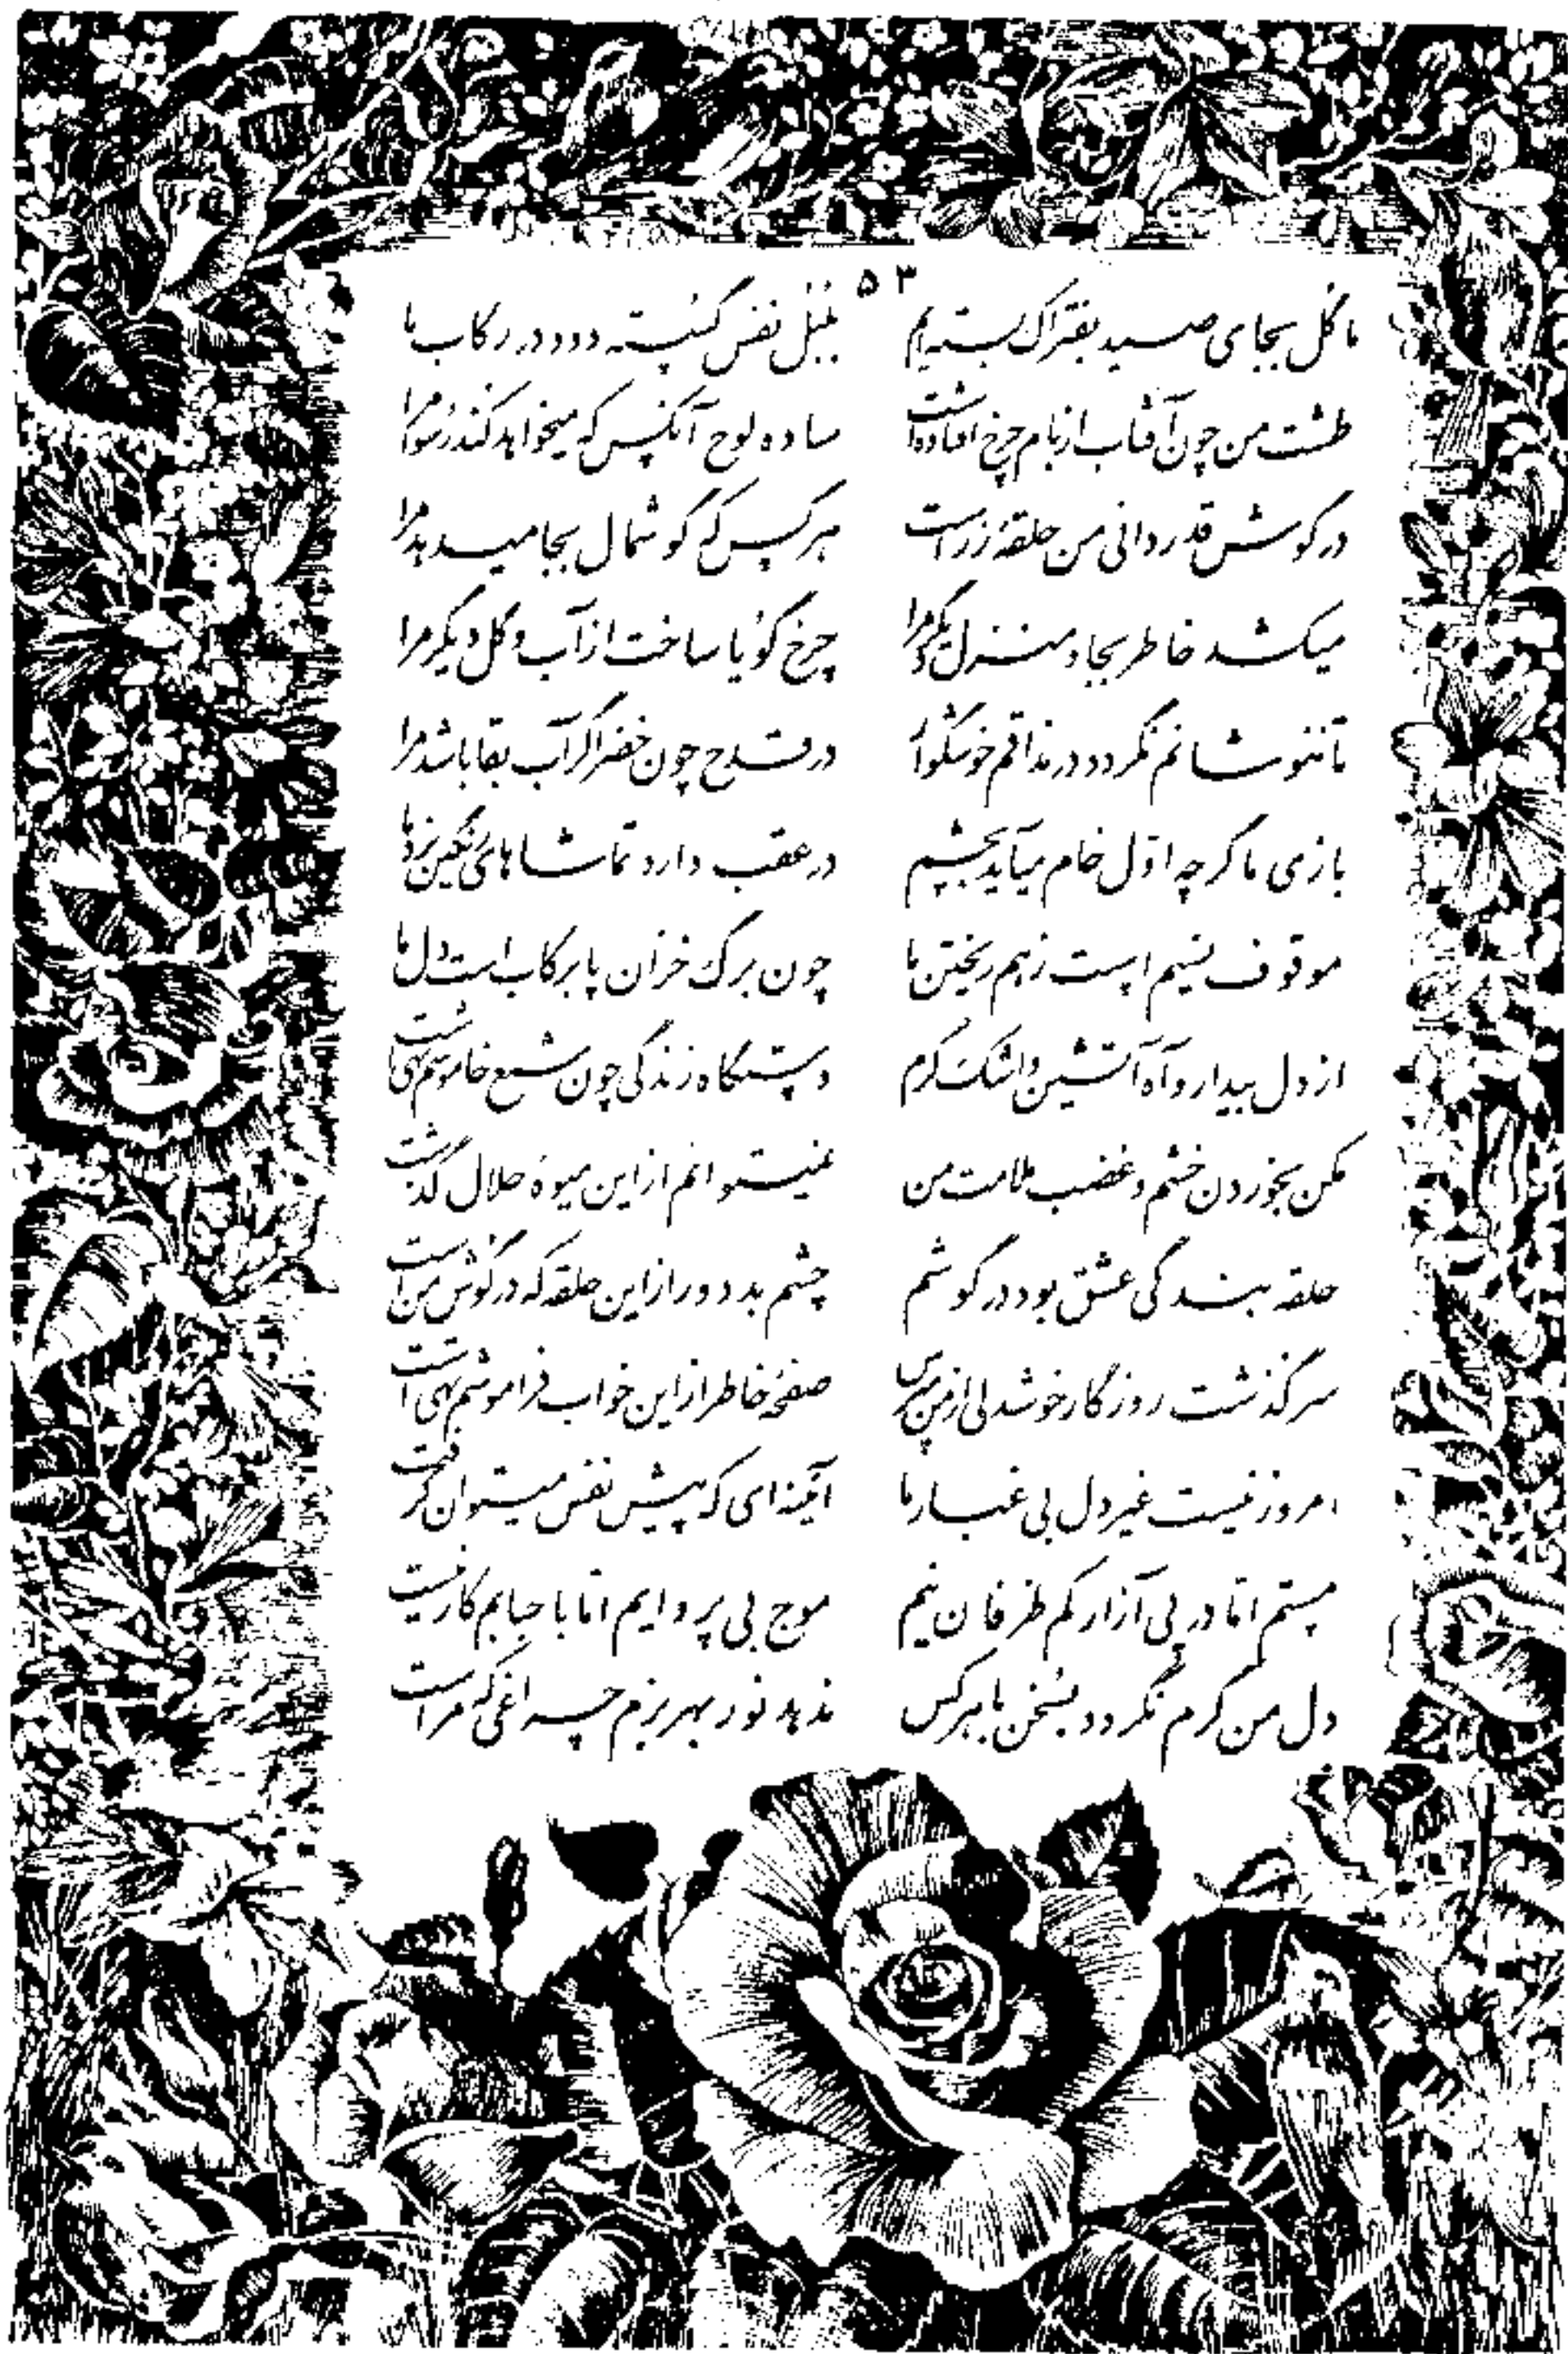 ۵۳
ما گل بجای صید بفتراک بسته‌ایم بلبل نفس گسسته دود در رکاب ما
طشت من چون آفتاب از بام چرخ افتاده است ساده لوح آنکس که میخواهد کند رسوا مرا
در گوش قدردانی من حلقهٔ زر است هر کس که گوشمال بجا میدهد مرا
میکشد خاطر بجا و منزل دیگر مرا چرخ گویا ساخت از آب و گل دیگر مرا
تا ننوشانم نگردد در مذاقم خوشگوار در قدح چون خضر اگر آب بقا باشد مرا
بازی ما گرچه اول خام میآید بچشم در عقب دارد تماشاهای رنگین نرد ما
موقوف نسیم است زهم ریختن ما چون برگ خزان پا برکاب است دل ما
از دل بیدار و آه آتشین و اشک گرم دستگاه زندگی چون شمع خاموشم تهی است
مکن بخوردن خشم و غضب ملامت من نمیتوانم از این میوهٔ حلال گذشت
حلقه بندگی عشق بود در گوشم چشم بد دور از این حلقه که در گوش من است
سرگذشت روزگار خوشدلی از من مپرس صفحهٔ خاطر از این خواب فراموشم تهی است
امروز نیست غیر دل بی غبار ما آئینه‌ای که پیش نفس میتوان گرفت
مستم اما در پی آزار کم ظرفان نیم موج بی پروایم اما با حبابم کار نیست
دل من گرم نگردد بسخن با هر کس ندهد نور بهر بزم چراغی که مراست